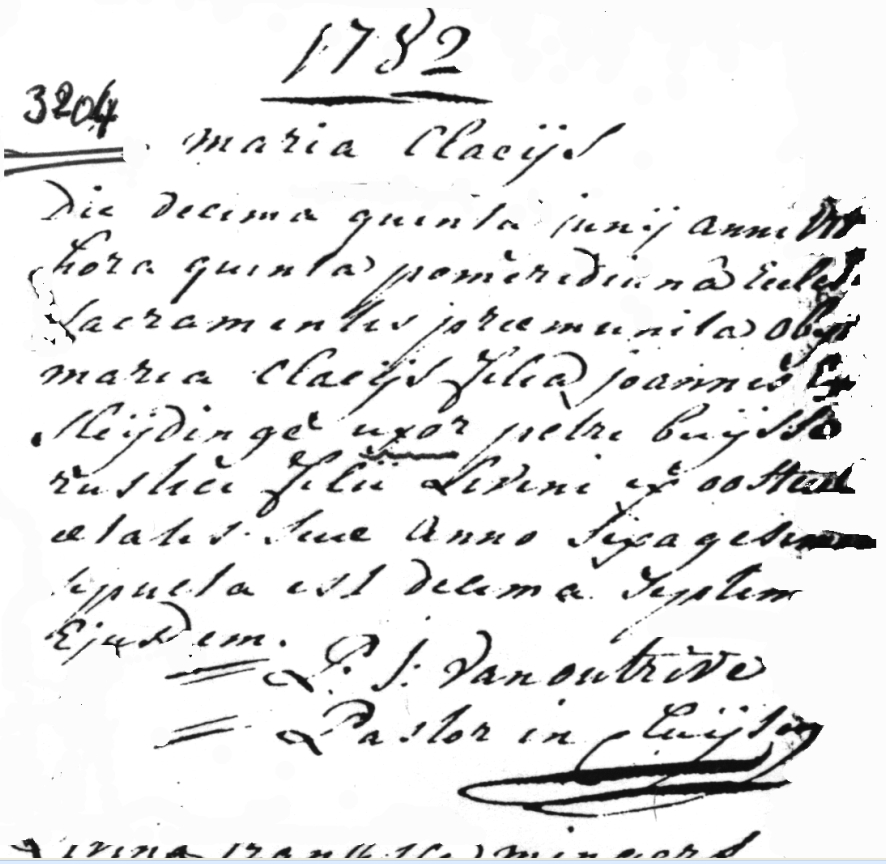 1782
3204
maria Claeijs
Die decima quinta junij anni
hora quinta pomeridiana
sacramentis premunita
maria Claeijs filia joannis
sleijdinge uxor petri buijsse
rustici filii Livini ex
aetatis suae Anno sexagesimo
sepulta est decima septim
Ejusdem.
P. J: Vanoutrive
Pastor in